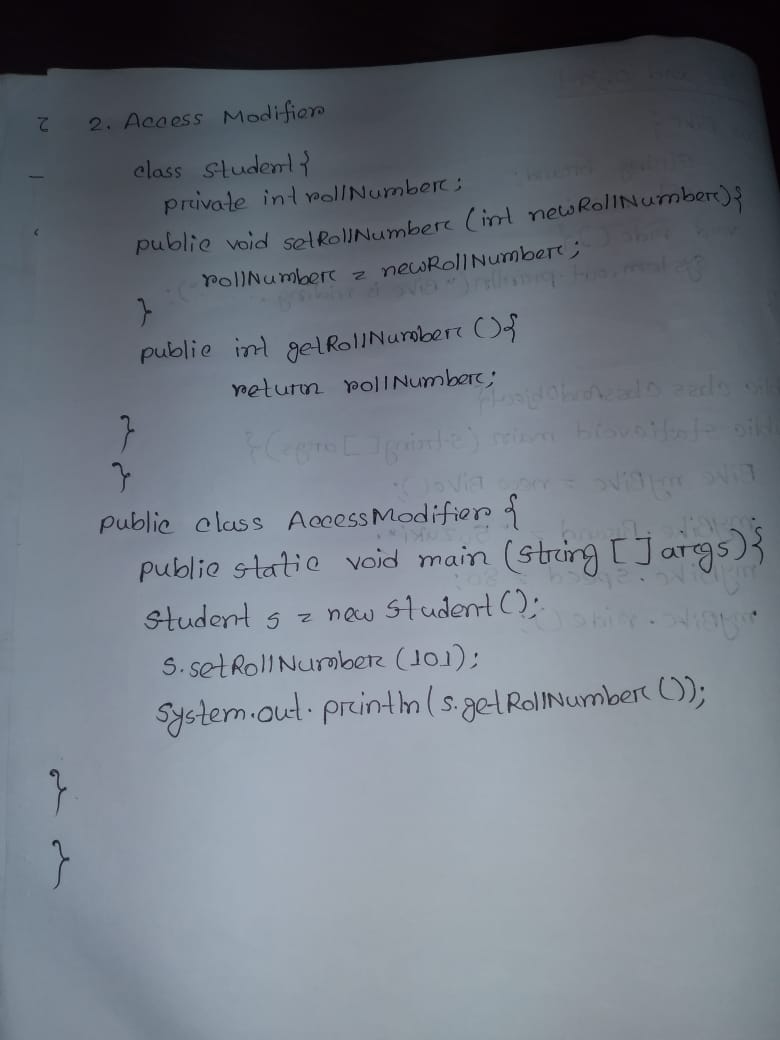 2. Access Modifier
class Student{
private int rollNumber;
public void setRollNumber (int newRollNumber){
rollNumber = newRollNumber;
}
public int getRollNumber (){
return rollNumber;
}
}
public class AccessModifier {
public static void main (string [] args){
Student s = new Student();
s.setRollNumber (101);
System.out.println(s.getRollNumber());
}
}